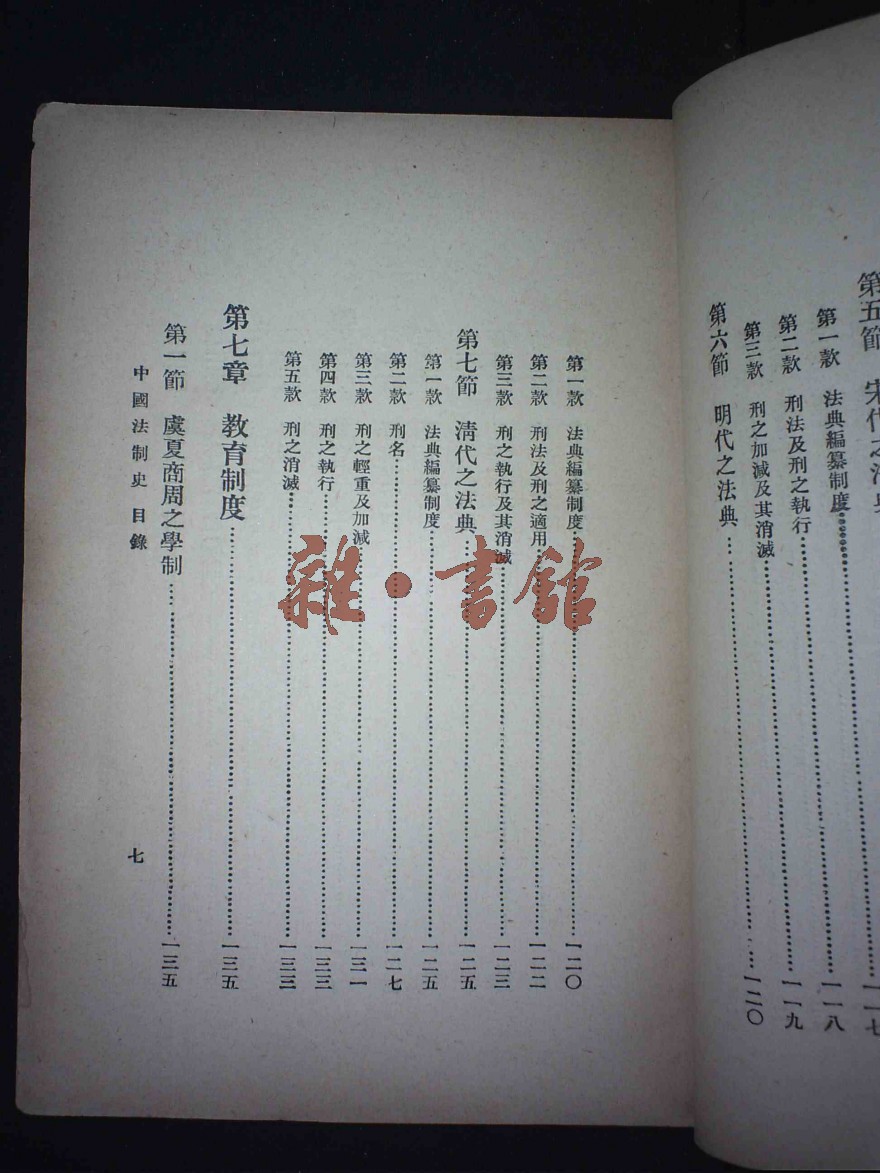 第五節　宋代之法典……一一七
第一款　法典編纂制度……一一八
第二款　刑法及刑之執行……一一九
第三款　刑之加減及其消滅……一二〇
第六節　明代之法典……
第一款　法典編纂制度……一二〇
第二款　刑法及刑之適用……一二二
第三款　刑之執行及其消滅……一二三
第七節　清代之法典……一二五
第一款　法典編纂制度……一二五
第二款　刑名……一二七
第三款　刑之輕重及加減……一三一
第四款　刑之執行……一三三
第五款　刑之消滅……一三三
第七章　教育制度……一三五
第一節　虞夏商周之學制……一三五
中國法制史　目錄
七
雜·書館